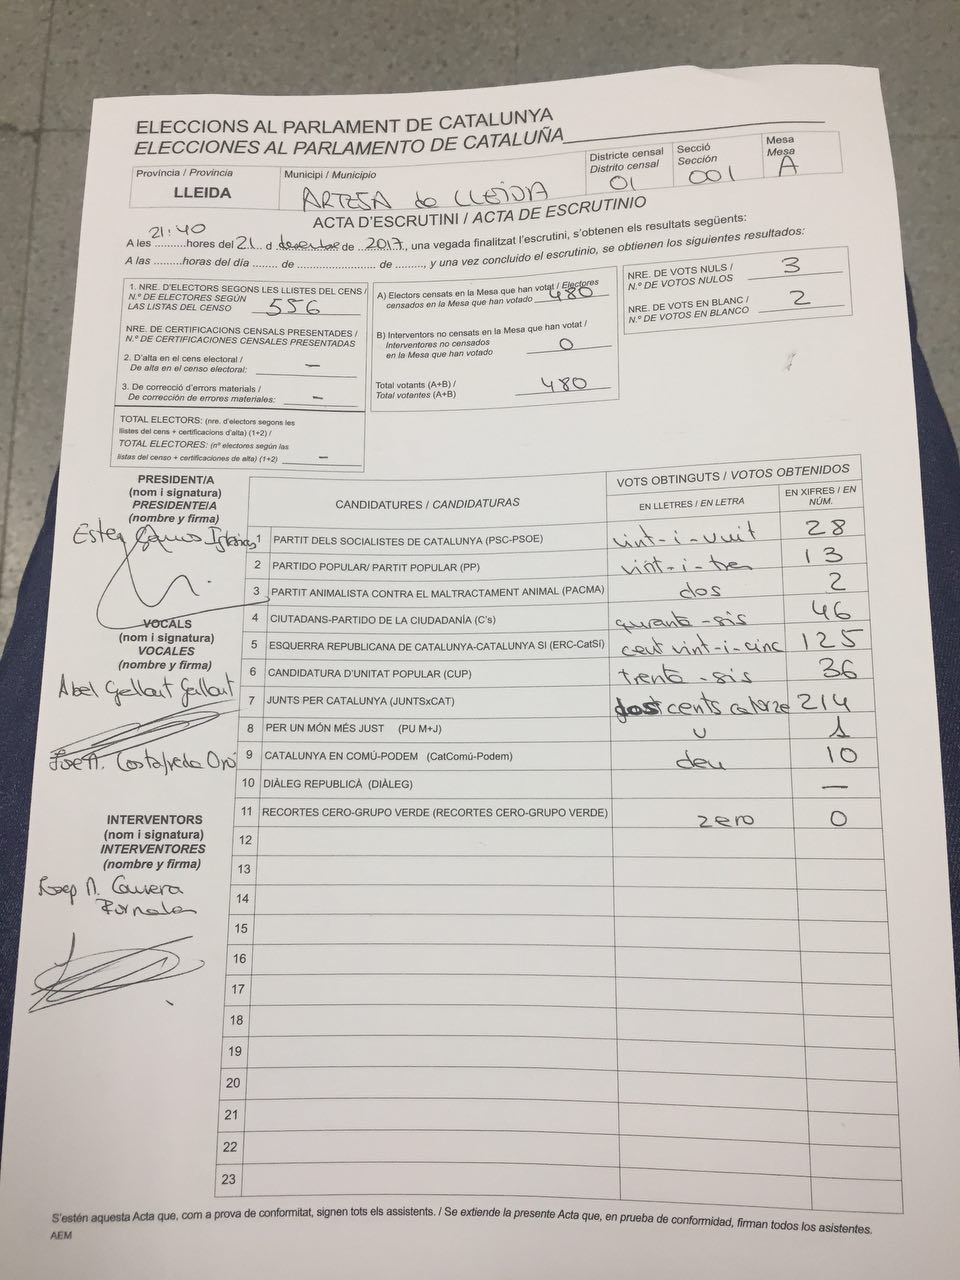 ELECCIONS AL PARLAMENT DE CATALUNYA
ELECCIONES AL PARLAMENTO DE CATALUÑA
Província / Provincia
LLEIDA
Municipi / Municipio
ARTESA de LLEIDA
Districte censal
Distrito censal
01
Secció
Sección
001
Mesa
Mesa
A
ACTA D'ESCRUTINI / ACTA DE ESCRUTINIO
21:40
A les ..........hores del 21 d desembre de 2017, una vegada finalitzat l'escrutini, s'obtenen els resultats següents:
A las .........horas del día ........ de ........................ de ........., y una vez concluido el escrutinio, se obtienen los siguientes resultados:
1. NRE. D'ELECTORS SEGONS LES LLISTES DEL CENS /
N.º DE ELECTORES SEGÚN
LAS LISTAS DEL CENSO 556
NRE. DE CERTIFICACIONS CENSALS PRESENTADES /
N.º DE CERTIFICACIONES CENSALES PRESENTADAS
2. D'alta en el cens electoral /
De alta en el censo electoral: –
3. De correcció d'errors materials /
De corrección de errores materiales: –
TOTAL ELECTORS: (nre. d'electors segons les
llistes del cens + certificacions d'alta) (1+2) /
TOTAL ELECTORES: (nº electores según las
listas del censo + certificaciones de alta) (1+2) –
A) Electors censats en la Mesa que han votat / Electores
censados en la Mesa que han votado 480
B) Interventors no censats en la Mesa que han votat /
Interventores no censados
en la Mesa que han votado 0
Total votants (A+B) /
Total votantes (A+B) 480
NRE. DE VOTS NULS /
N.º DE VOTOS NULOS 3
NRE. DE VOTS EN BLANC /
N.º DE VOTOS EN BLANCO 2
PRESIDENT/A
(nom i signatura)
PRESIDENTE/A
(nombre y firma)
Ester
VOCALS
(nom i signatura)
VOCALES
(nombre y firma)
Abel Gallart Gallart
Costafreda Oró
INTERVENTORS
(nom i signatura)
INTERVENTORES
(nombre y firma)
Josep
CANDIDATURES / CANDIDATURAS
VOTS OBTINGUTS / VOTOS OBTENIDOS
EN LLETRES / EN LETRA
EN XIFRES / EN NÚM.
1 PARTIT DELS SOCIALISTES DE CATALUNYA (PSC-PSOE) vint-i-vuit 28
2 PARTIDO POPULAR/ PARTIT POPULAR (PP) vint-i-tres 13
3 PARTIT ANIMALISTA CONTRA EL MALTRACTAMENT ANIMAL (PACMA) dos 2
4 CIUTADANS-PARTIDO DE LA CIUDADANÍA (C's) quranta-sis 46
5 ESQUERRA REPUBLICANA DE CATALUNYA-CATALUNYA SÍ (ERC-CatSí) cent vint-i-cinc 125
6 CANDIDATURA D'UNITAT POPULAR (CUP) trenta-sis 36
7 JUNTS PER CATALUNYA (JUNTSxCAT) dos cents catorze 214
8 PER UN MÓN MÉS JUST (PU M+J) u 1
9 CATALUNYA EN COMÚ-PODEM (CatComú-Podem) deu 10
10 DIÀLEG REPUBLICÀ (DIÀLEG) —
11 RECORTES CERO-GRUPO VERDE (RECORTES CERO-GRUPO VERDE) zero 0
12
13
14
15
16
17
18
19
20
21
22
23
S'estén aquesta Acta que, com a prova de conformitat, signen tots els assistents. / Se extiende la presente Acta que, en prueba de conformidad, firman todos los asistentes.
AEM